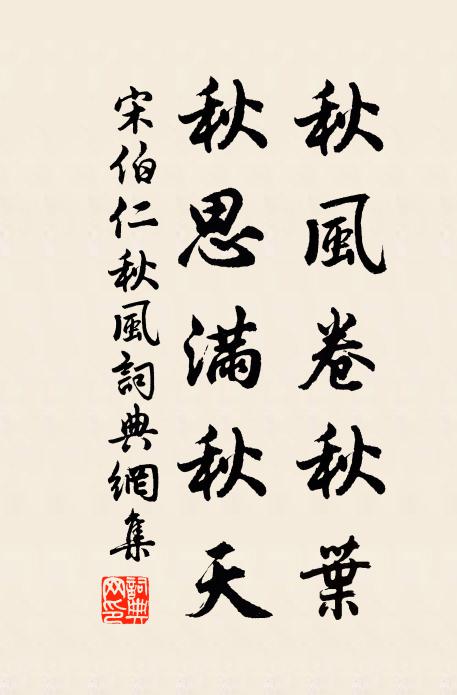 秋風卷秋葉
秋思滿秋天
宋伯仁秋風詞典網集
詞典網印